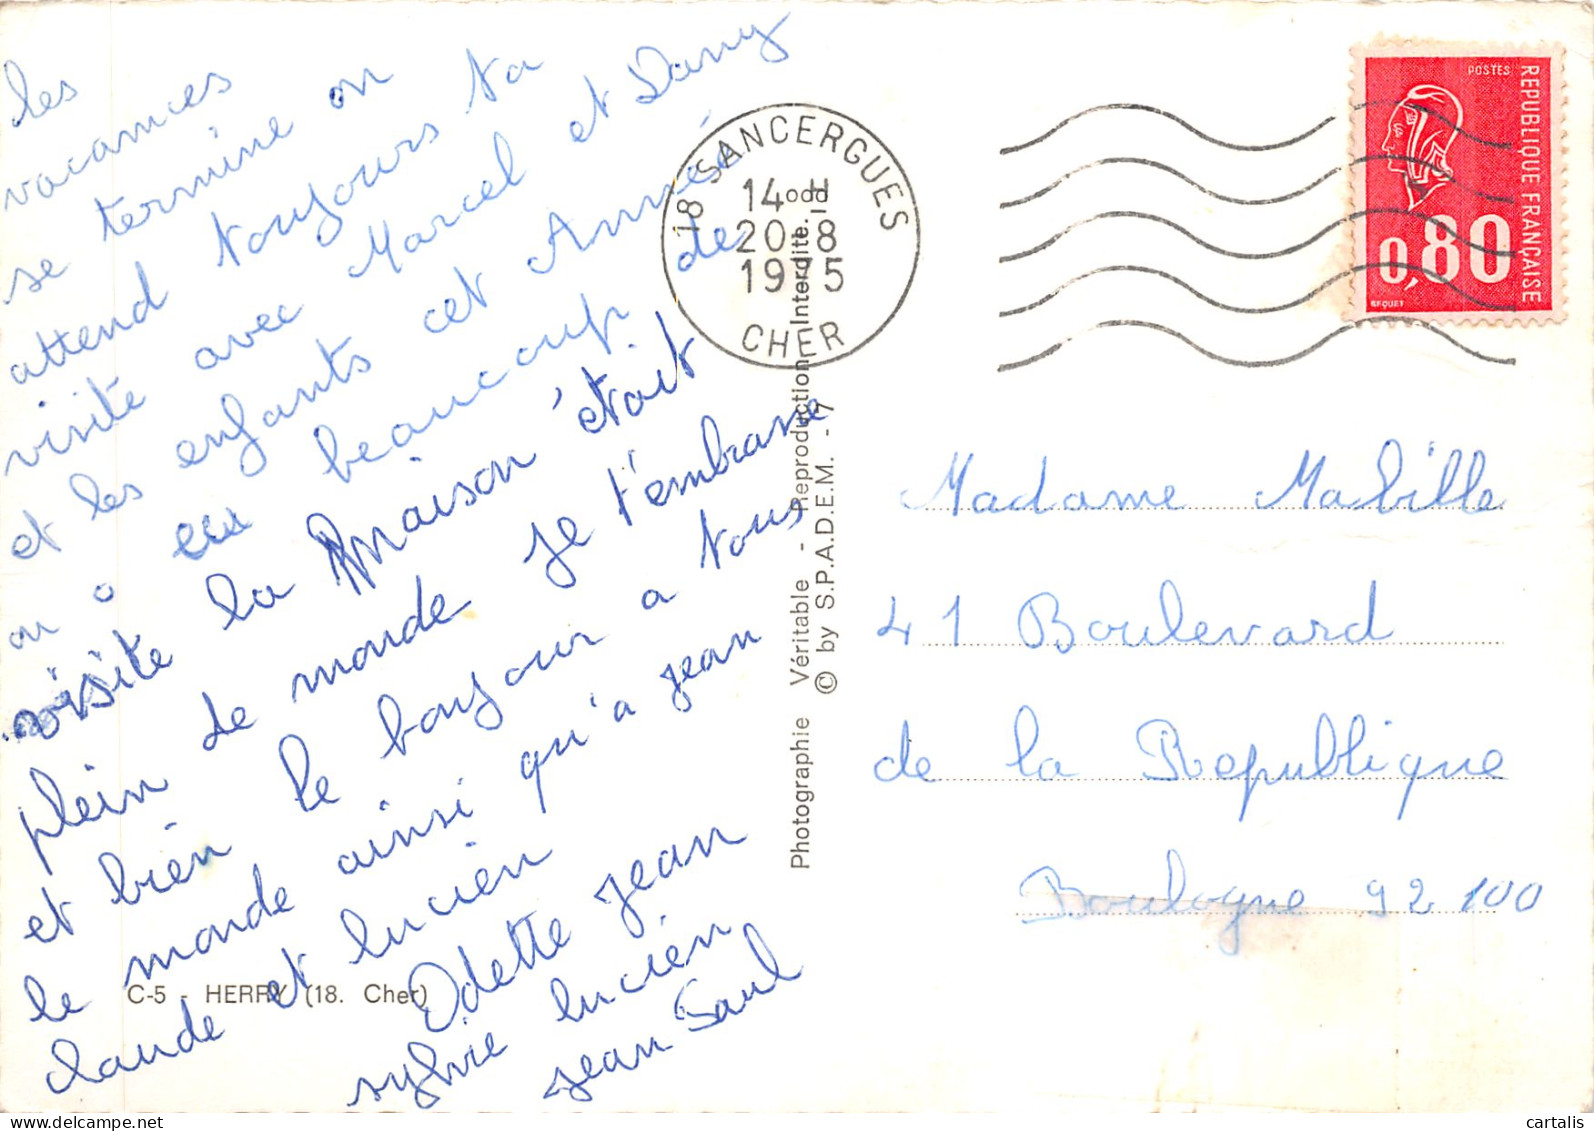 les
vacances
se termine on
attend toujours ta
visite avec Marcel et Dany
et les enfants cet Année
on a eu beaucoup de
visite la maison était
plein de monde je t'embrasse
et bien le bonjour a tous
le monde ainsi qu'a jean
claude et lucien
Odette jean
sylvie lucien
jean Paul
C-5 - HERRY (18. Cher)
Photographie Véritable - Reproduction Interdite.
© by S.P.A.D.E.M. - 7
18 SANCERGUES
14 H
20-8
1975
CHER
POSTES
REPUBLIQUE FRANÇAISE
0,80
BEQUET
Madame Mabille
41 Boulevard
de la Republique
Boulogne 92 100
cartalis
delcampe.net